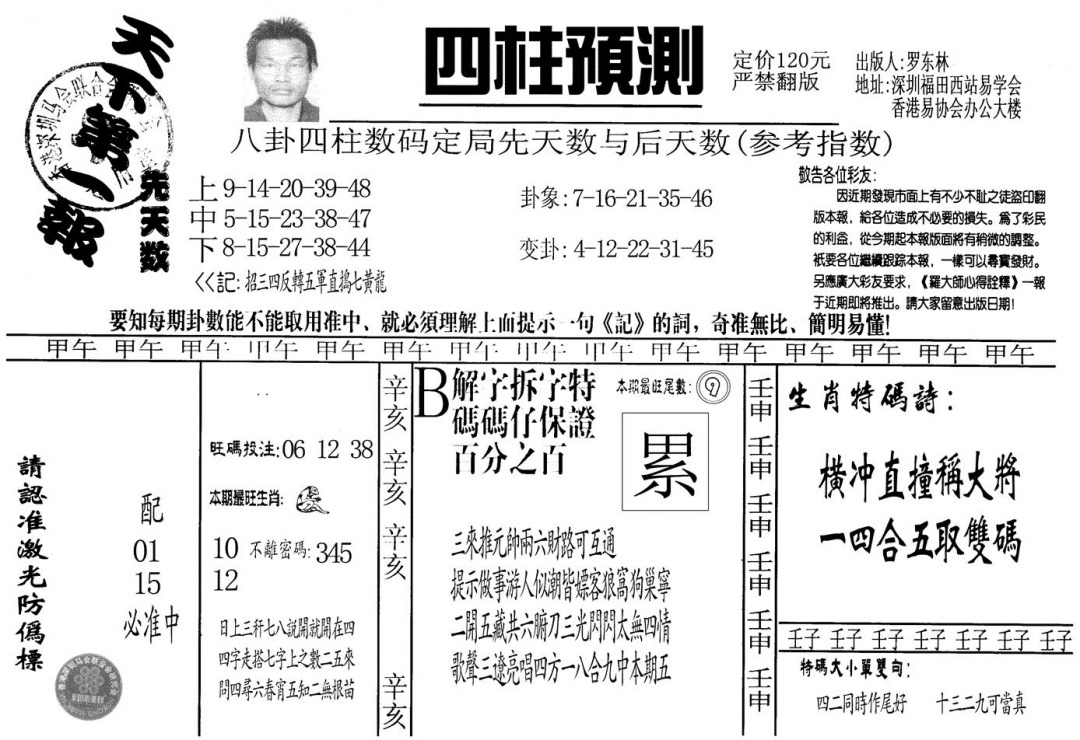 天下第一報
四柱預測
定价120元
严禁翻版
出版人:罗东林
地址:深圳福田西站易学会
香港易协会办公大楼
八卦四柱数码定局先天数与后天数(参考指数)
先天数
上9-14-20-39-48
中5-15-23-38-47
下8-15-27-38-44
<<記:招三四反轉五軍直搗七黃龍
卦象:7-16-21-35-46
变卦:4-12-22-31-45
敬告各位彩友:
因近期發現市面上有不少不耻之徒盜印翻
版本報,給各位造成不必要的損失。爲了彩民
的利益,從今期起本報版面將有稍微的調整。
祇要各位繼續跟踪本報,一樣可以尋寶發財。
另應廣大彩友要求,《羅大師心得詮釋》一報
于近期即將推出。請大家留意出版日期!
要知每期卦數能不能取用准中、就必須理解上面提示一句《記》的詞,奇准無比、簡明易懂!
甲午 甲午 甲午 甲午 甲午 甲午 甲午 甲午 甲午 甲午 甲午 甲午 甲午 甲午 甲午
請認准激光防僞標
配
01
15
必准中
旺碼投注:06 12 38
本期最旺生肖:
10 不離密碼:345
12
日上三秆七八説開就開在四
四字走搭七字上之數二五來
問四尋六春宵五知二無根苗
辛亥
辛亥
辛亥
辛亥
B解字拆字特
碼碼仔保證
百分之百
本期最旺尾數:9
累
三來推元帥兩六財路可五通
提示做事游人似潮皆嫖客狼窩狗巢寧
二開五藏共六腑刀三光閃閃太無四情
歌聲三遼亮唱四方一八合九中本期五
壬申
壬申
壬申
壬申
壬申
壬申
生肖特碼詩:
橫冲直撞稱大將
一四合五取雙碼
壬子 壬子 壬子 壬子 壬子 壬子 壬子
特碼大小單雙句:
四二同時作尾好 十三二九可當真